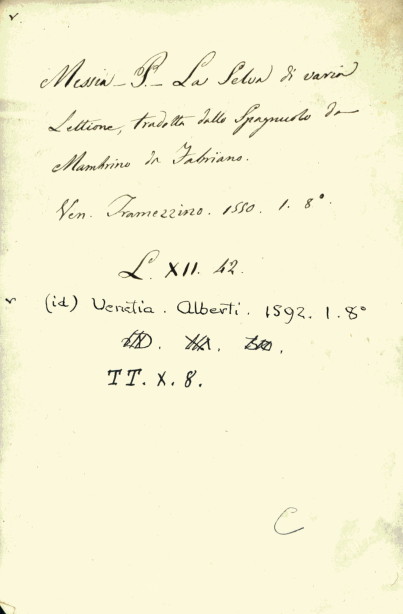 Messia - P. - La Selva di varia
Lettione, tradotta dallo Spagnuolo da
Mambrino da Fabriano.
Ven. Tramezzino. 1550. 1. 8°.
L. XII. 42.
(id) Venetia. Alberti. 1592. 1. 8°
TT. X. 8.
C